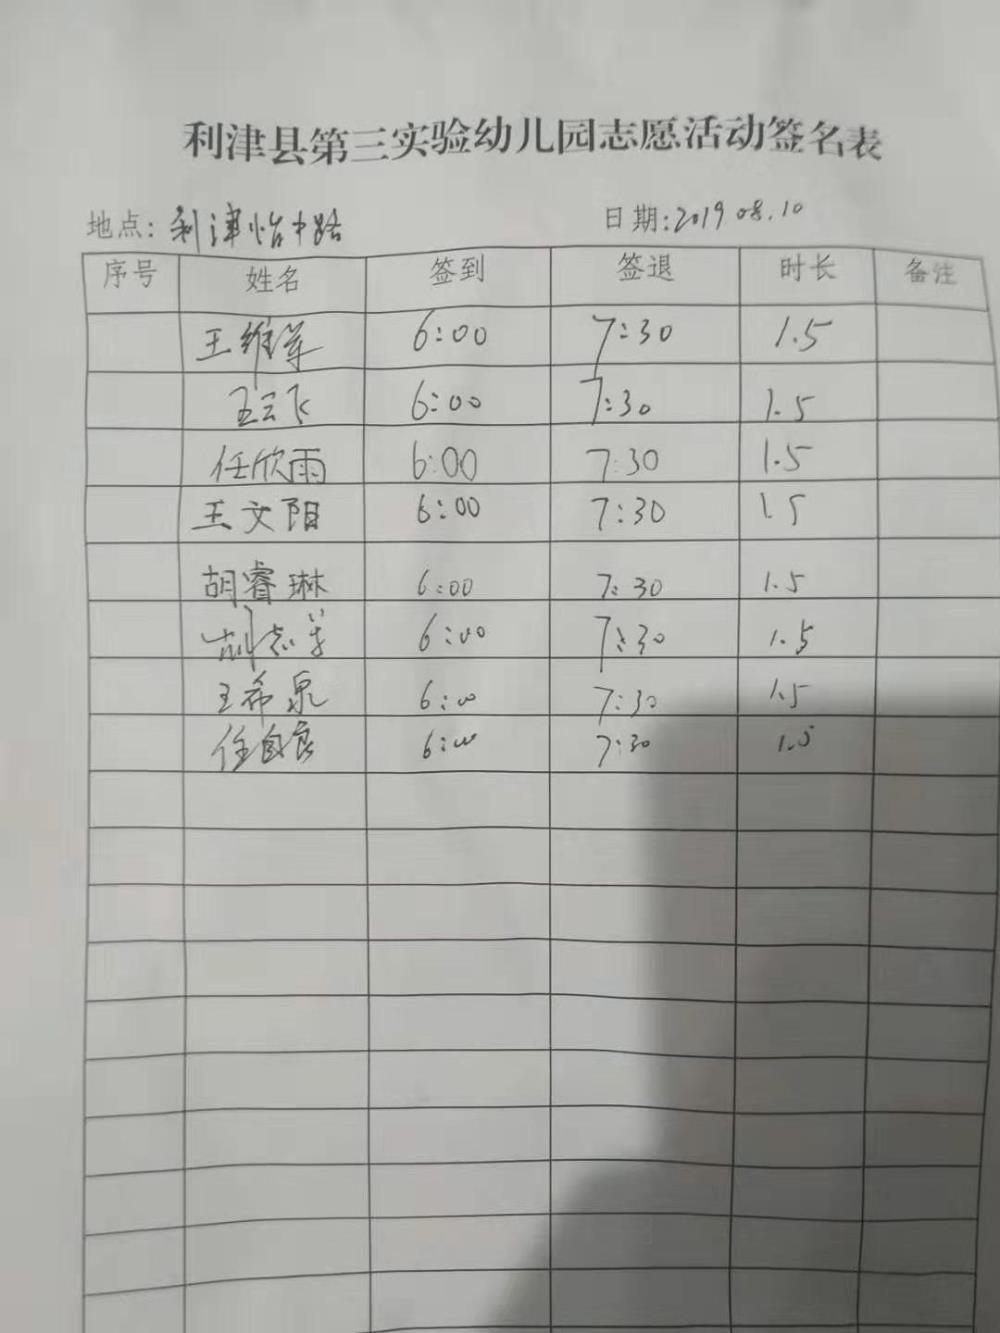 利津县第三实验幼儿园志愿活动签名表
地点：利津怡中路 日期：2019 08.10
序号 姓名 签到 签退 时长 备注
王维军 6:00 7:30 1.5
王云飞 6:00 7:30 1.5
任欣雨 6:00 7:30 1.5
王文阳 6:00 7:30 1.5
胡睿琳 6:00 7:30 1.5
6:00 7:30 1.5
王希泉 6:00 7:30 1.5
任自良 6:00 7:30 1.5